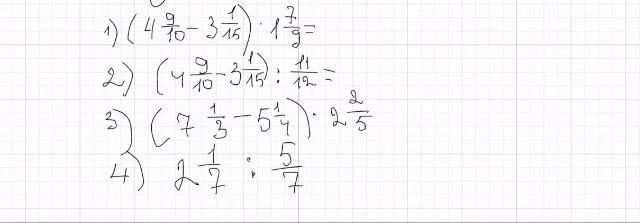 1) (4 9/10 - 3 1/15) · 1 7/9 =
2) (4 9/10 - 3 1/15) : 11/12 =
3) (7 1/3 - 5 1/4) · 2 2/5
4) 2 1/7 : 5/7